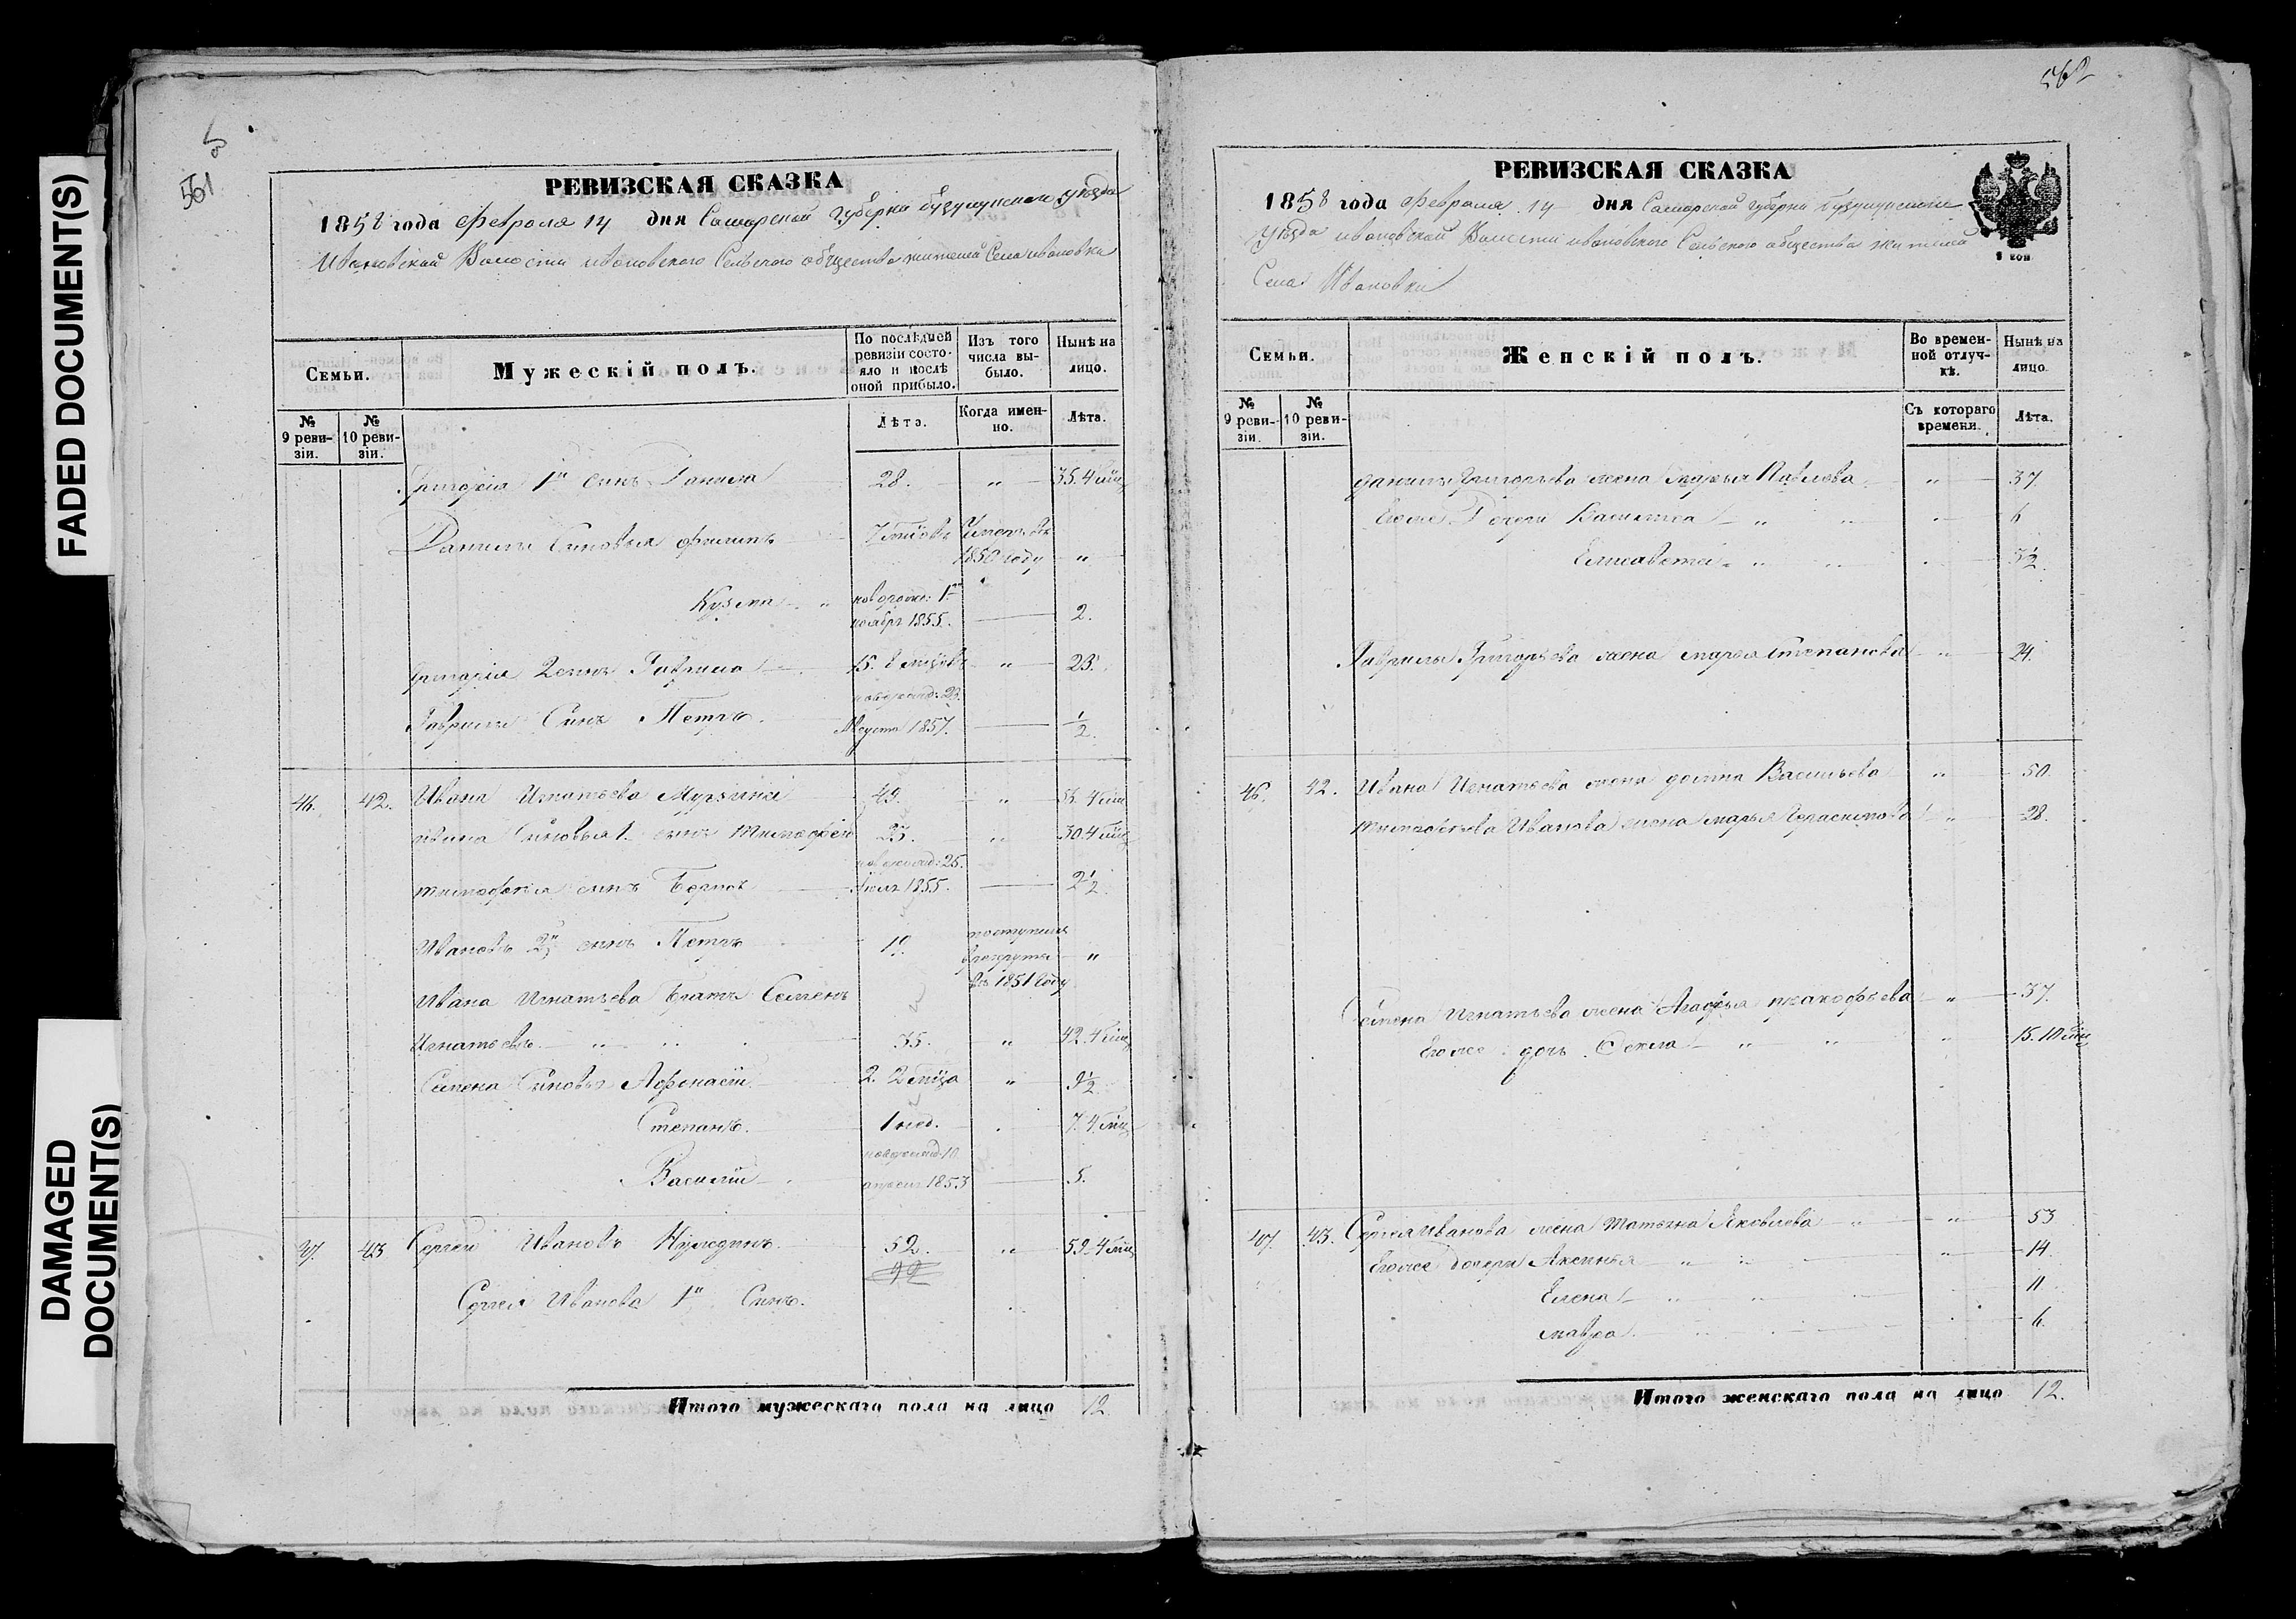 FADED DOCUMENT(S)
DAMAGED
DOCUMENT(S)
561
РЕВИЗСКАЯ СКАЗКА
1858 года Февраля 14 дня Самарской губерни Бузулукскаго уѣзда
Ивановской Волости ивановского Сельского общества жителей Села ивановки
Семьи.
Мужескій полъ.
По послѣдней
ревизіи состо-
яло и послѣ
оной прибыло.
Изъ того
числа вы-
было.
Нынѣ на
лицо.
№
9 реви-
зіи.
№
10 реви-
зіи.
Лѣта.
Когда имен-
но.
Лѣта.
Григорія 1й сынъ Данила 28. " 35. 4 мѣц
Данилы Сыновья Филипъ 7 мцовъ Умеръ въ
1850 году "
Кузма " новорож: 1го
ноября 1855. 2.
Григорія 2 сынъ Гаврила 15. 8 мцовъ " 23.
новорожд: 23
Гаврилы Сынъ Петръ. Августа 1857. 1/2.
46. 42. Ивана Игнатьева 49. " 56. 4 мц
ивана Сыновья 1. сынъ Тимофей 23. " 30. 4 мц
новорожд: 25.
тимофея сынъ 1855. 2 1/2.
Ивановъ 2й сынъ Петръ 19. поступилъ
врекруты "
въ 1851 году
Ивана Игнатьева братъ Семенъ
Игнатьевъ. " 35. " 42. 4 мц
Семена Сыновья Афонасій 2. 2 мца " 9 1/2
Степанъ. 1 нед. 7. 4 мц
новорожд: 10
Василій апреля 1853 5.
47. 43 Сергей Ивановъ 52. " 59. 4 мц
Сергея Иванова 1й Сынъ.
Итого мужескаго пола на лицо 12.
562
РЕВИЗСКАЯ СКАЗКА
1858 года Февраля 14 дня Самарской губерни Бузулукскаго
уѣзда ивановской Волости ивановского Сельского общества жителей
Села Ивановки
1 коп
Семьи.
Женскій полъ.
Во времен-
ной отлуч-
кѣ.
Нынѣ на
лицо.
№
9 реви-
зіи.
№
10 реви-
зіи.
Съ котораго
времени.
Лѣта.
Данилы Григорьева жена марья Павлова " 37.
Егоже Дочери Василиса " 6
Елисавета " 3 1/2.
Гаврилы Григорьева жена марья Степанова " 24.
46. 42. Ивана Игнатьева жена домна Васильева " 50.
тимофеева Иванова жена марья Герасимова " 28.
Семена Игнатьева жена Агафья " 37.
Егоже дочь Фекла " " 15. 10 мц
47. 43. Сергея иванова жена татьяна Яковлева " " 53
Егоже Дочери Аксинья " " 14.
Елена " " 11.
мавра 6.
Итого женскаго пола на лицо 12.